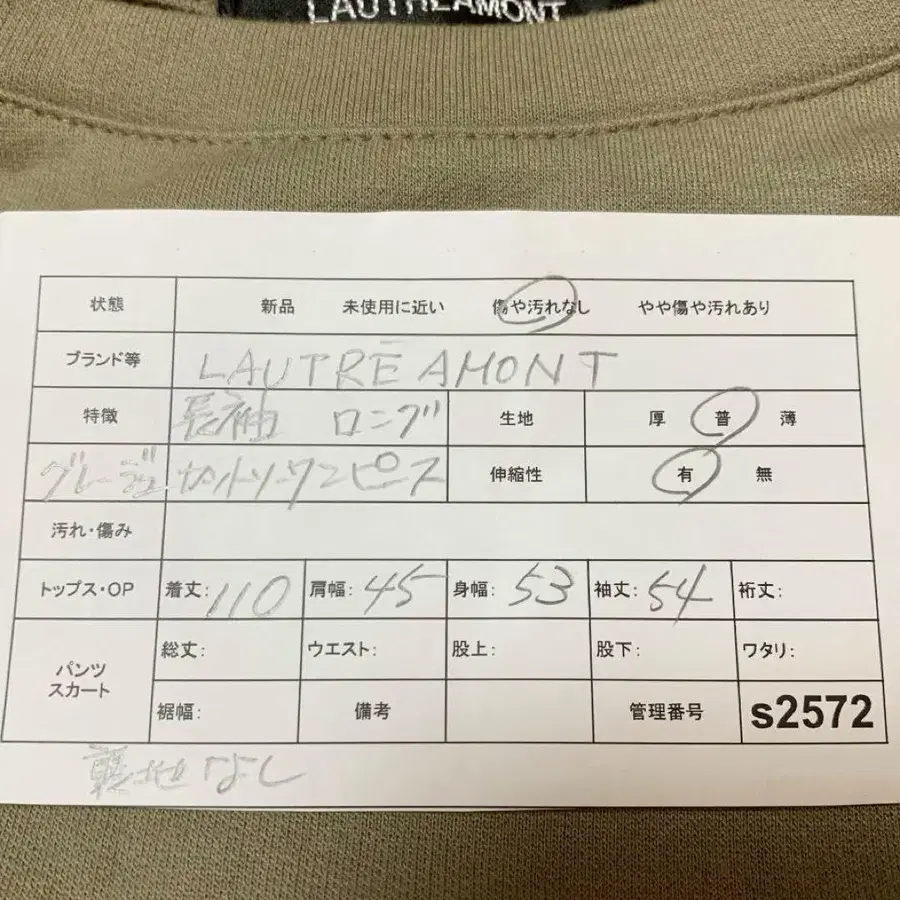 LAUTREAMONT
状態 新品 未使用に近い 傷や汚れなし やや傷や汚れあり
ブランド等 LAUTRÉAMONT
特徴 長袖 ロング 生地 厚 普 薄
グレージュ カットソーワンピース 伸縮性 有 無
汚れ・傷み
トップス・OP 着丈: 110 肩幅: 45 身幅: 53 袖丈: 54 裄丈:
パンツ スカート 総丈: ウエスト: 股上: 股下: ワタリ:
裾幅: 備考 管理番号 s2572
裏地なし